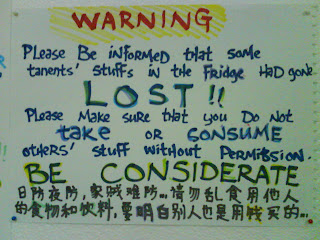 WARNING
Please Be informed that some
tanents' stuffs in the Fridge HaD gone
LOST !!
Please Make sure that you Do Not
take OR CONSUME
others' stuff without Permission.
BE CONSIDERATE
日防夜防，家贼难防...请勿乱食用他人
的食物和饮料，要明白别人也是用钱买的...